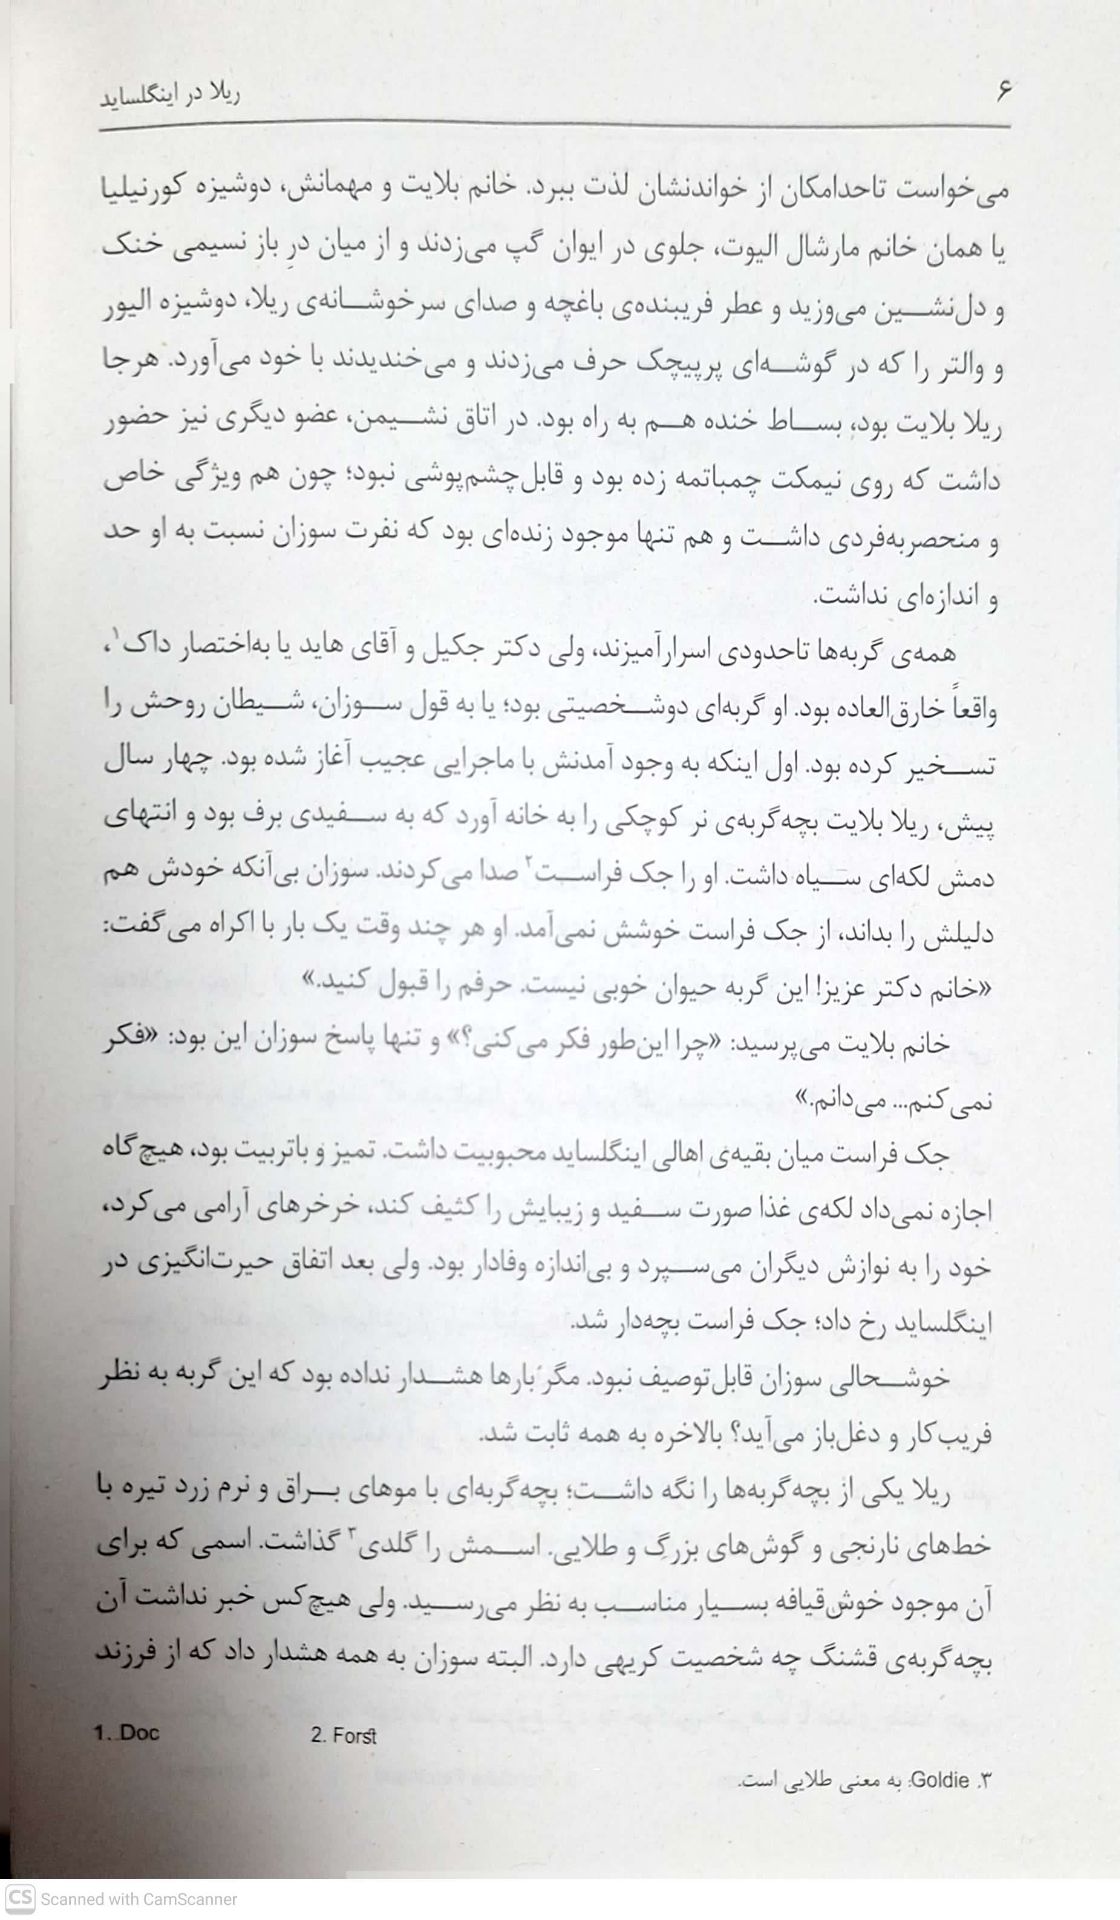 ۶
ریلا در اینگلساید
می‌خواست تاحدامکان از خواندنشان لذت ببرد. خانم بلایت و مهمانش، دوشیزه کورنیلیا
یا همان خانم مارشال الیوت، جلوی در ایوان گپ می‌زدند و از میان درِ باز نسیمی خنک
و دل‌نشین می‌وزید و عطر فریبنده‌ی باغچه و صدای سرخوشانه‌ی ریلا، دوشیزه الیور
و والتر را که در گوشه‌ای پرپیچک حرف می‌زدند و می‌خندیدند با خود می‌آورد. هرجا
ریلا بلایت بود، بساط خنده هم به راه بود. در اتاق نشیمن، عضو دیگری نیز حضور
داشت که روی نیمکت چمباتمه زده بود و قابل‌چشم‌پوشی نبود؛ چون هم ویژگی خاص
و منحصربه‌فردی داشت و هم تنها موجود زنده‌ای بود که نفرت سوزان نسبت به او حد
و اندازه‌ای نداشت.
همه‌ی گربه‌ها تاحدودی اسرارآمیزند، ولی دکتر جکیل و آقای هاید یا به‌اختصار داک۱،
واقعاً خارق‌العاده بود. او گربه‌ای دوشخصیتی بود؛ یا به قول سوزان، شیطان روحش را
تسخیر کرده بود. اول اینکه به وجود آمدنش با ماجرایی عجیب آغاز شده بود. چهار سال
پیش، ریلا بلایت بچه‌گربه‌ی نر کوچکی را به خانه آورد که به سفیدی برف بود و انتهای
دمش لکه‌ای سیاه داشت. او را جک فراست۲ صدا می‌کردند. سوزان بی‌آنکه خودش هم
دلیلش را بداند، از جک فراست خوشش نمی‌آمد. او هر چند وقت یک بار با اکراه می‌گفت:
«خانم دکتر عزیز! این گربه حیوان خوبی نیست. حرفم را قبول کنید.»
خانم بلایت می‌پرسید: «چرا این‌طور فکر می‌کنی؟» و تنها پاسخ سوزان این بود: «فکر
نمی‌کنم... می‌دانم.»
جک فراست میان بقیه‌ی اهالی اینگلساید محبوبیت داشت. تمیز و باتربیت بود، هیچ‌گاه
اجازه نمی‌داد لکه‌ی غذا صورت سفید و زیبایش را کثیف کند، خرخرهای آرامی می‌کرد،
خود را به نوازش دیگران می‌سپرد و بی‌اندازه وفادار بود. ولی بعد اتفاق حیرت‌انگیزی در
اینگلساید رخ داد؛ جک فراست بچه‌دار شد.
خوشحالی سوزان قابل‌توصیف نبود. مگر بارها هشدار نداده بود که این گربه به نظر
فریب‌کار و دغل‌باز می‌آید؟ بالاخره به همه ثابت شد.
ریلا یکی از بچه‌گربه‌ها را نگه داشت؛ بچه‌گربه‌ای با موهای براق و نرم زرد تیره با
خط‌های نارنجی و گوش‌های بزرگ و طلایی. اسمش را گلدی۳ گذاشت. اسمی که برای
آن موجود خوش‌قیافه بسیار مناسب به نظر می‌رسید. ولی هیچ‌کس خبر نداشت آن
بچه‌گربه‌ی قشنگ چه شخصیت کریهی دارد. البته سوزان به همه هشدار داد که از فرزند
1. Doc 2. Forst
۳. Goldie: به معنی طلایی است.
CS Scanned with CamScanner